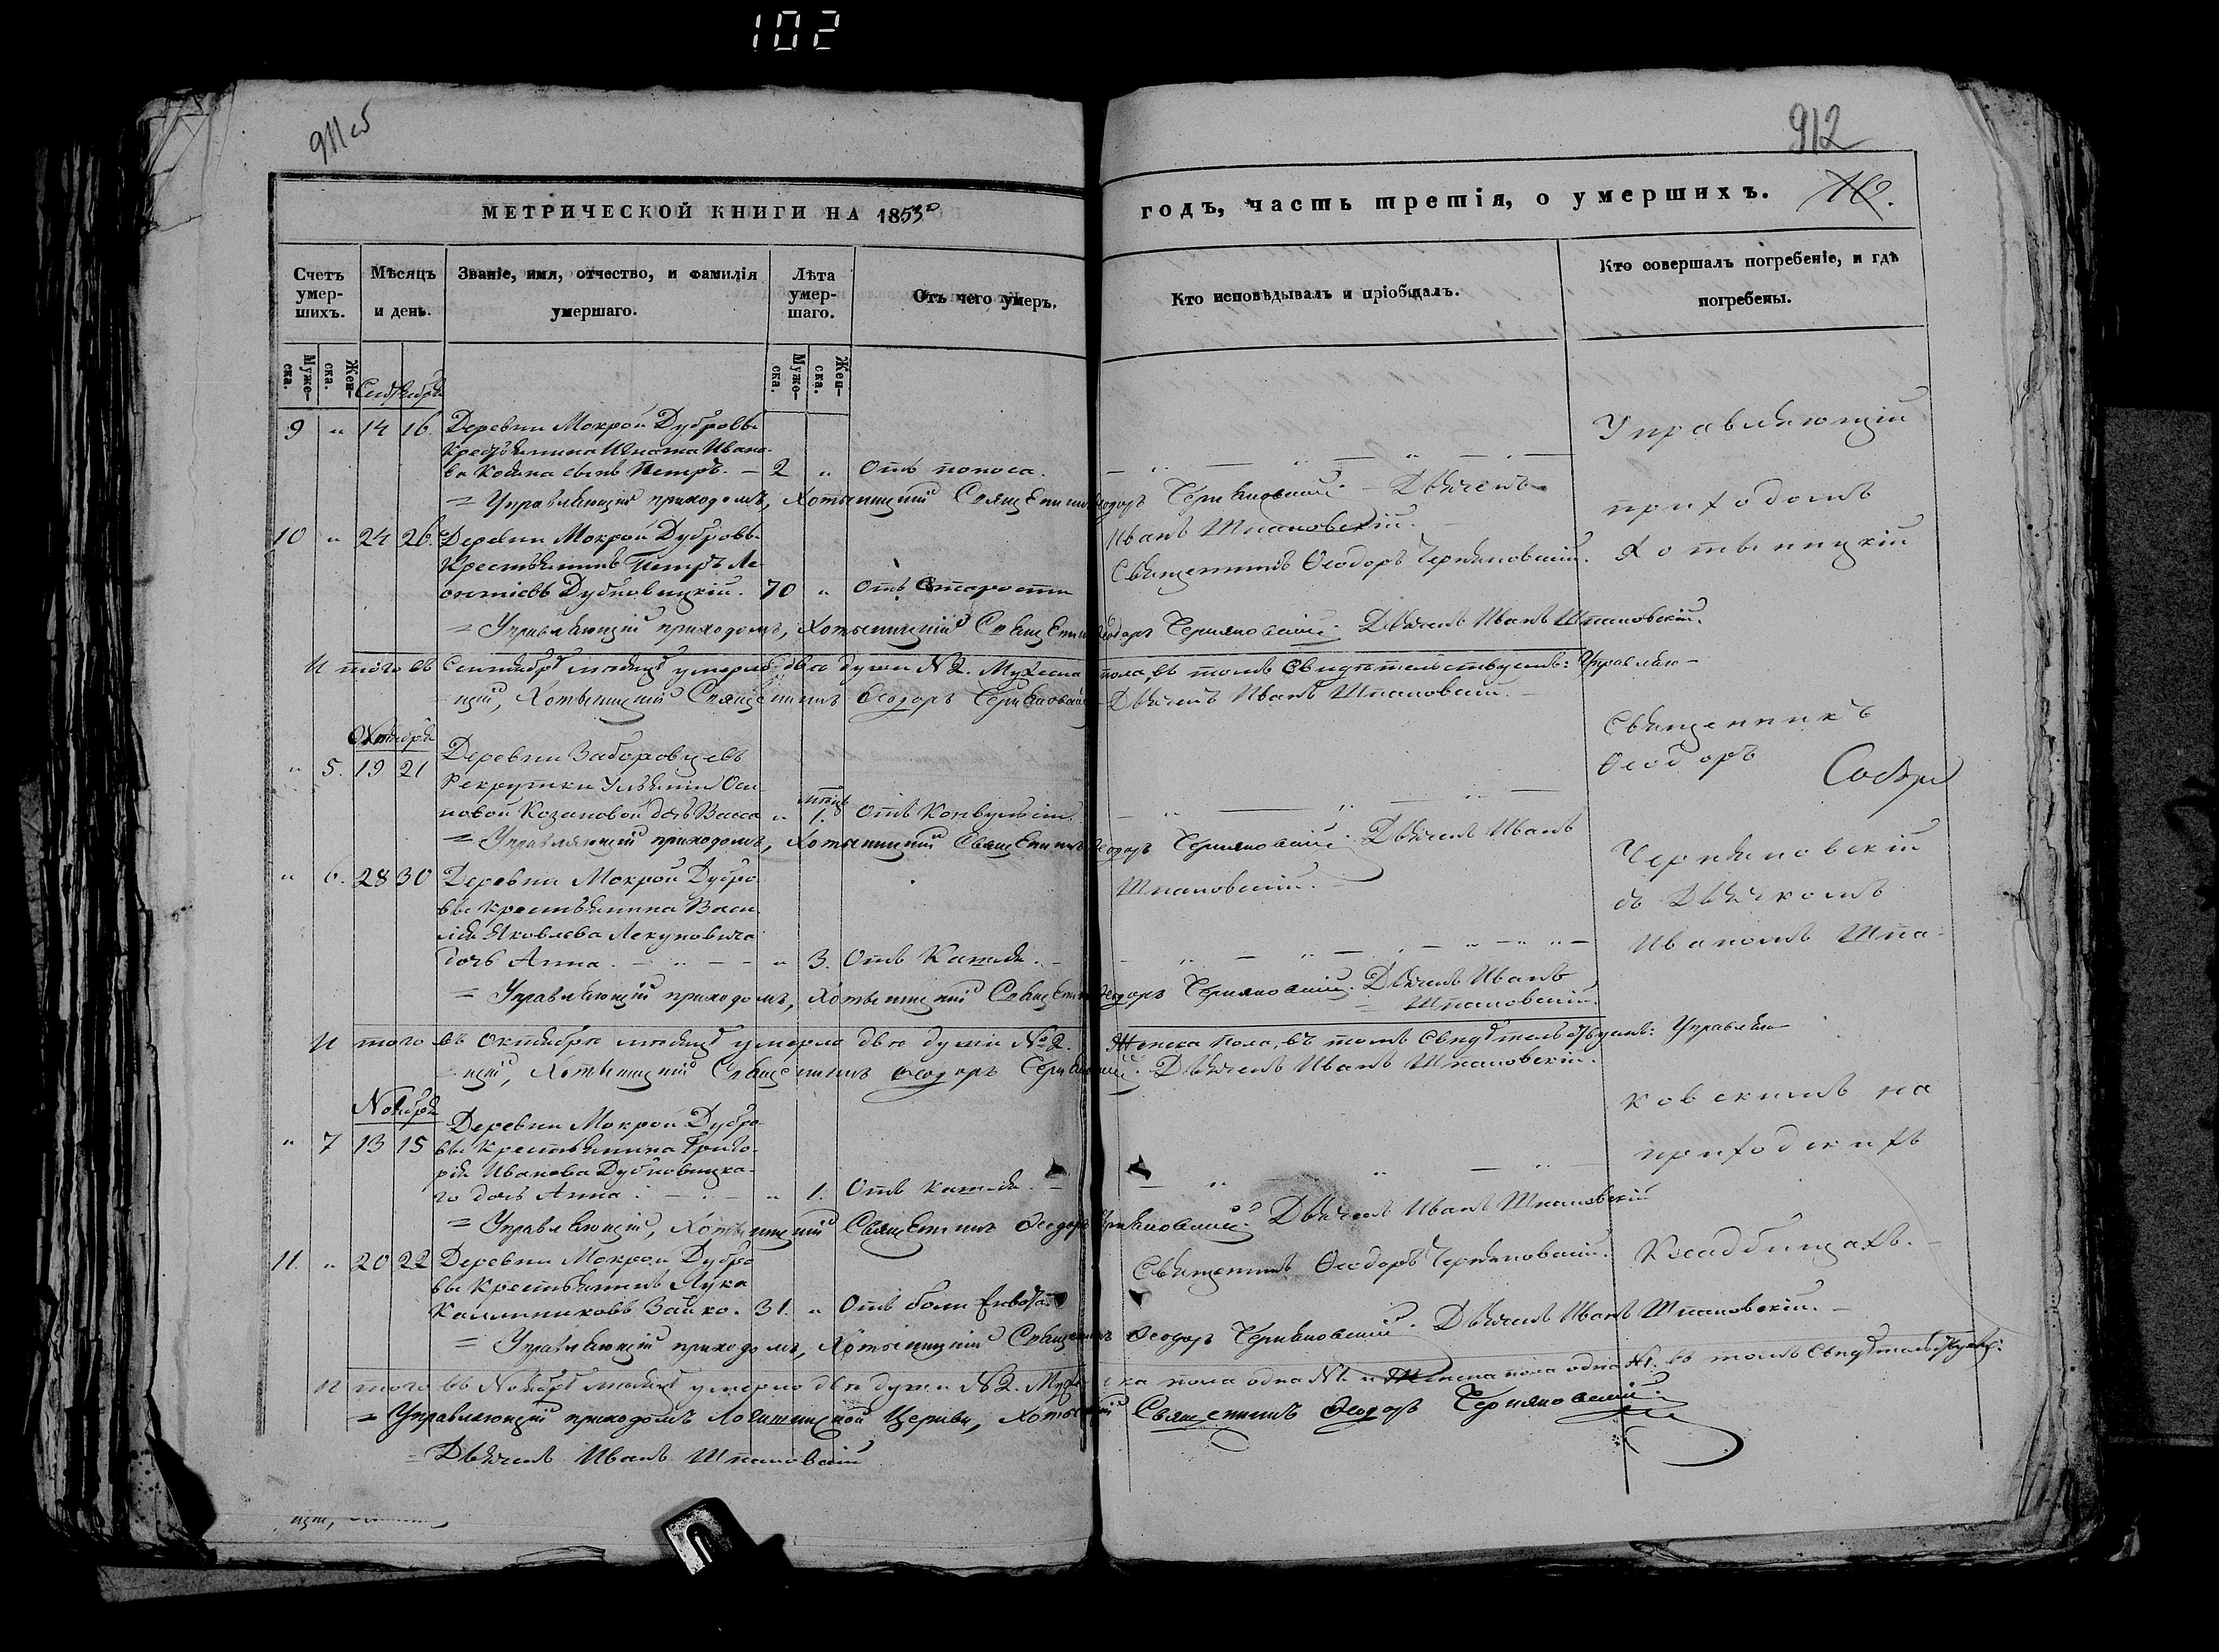 102
911 об
912
МЕТРИЧЕСКОЙ КНИГИ НА 1853й
годъ, часть третія, о умершихъ.
Счетъ умер-шихъ.
Мѣсяцъ и день.
Званіе, имя, отчество, и фамилія умершаго.
Лѣта умер-шаго.
Отъ чего умеръ.
Кто исповѣдывалъ и пріобщалъ.
Кто совершалъ погребеніе, и гдѣ погребены.
Муже-ска.
Жен-ска.
Муже-ска.
Жен-ска.
9 " 14 16. Деревни Мокрой Дубровы
Крестьянина Игната Ивано-
ва сынъ Петръ. — 2 " Отъ поноса.
= Управляющій приходомъ, Хотыницкій Священникъ Ѳеодоръ Черняковскій. Дьячекъ
Иванъ Шпаковскій.
10 " 24 26. Деревни Мокрой Дубровы
Крестьянинъ Петръ Ле-
онтіевъ Дубновицкій. 70 " Отъ Старости
Священникъ Ѳеодоръ Черняковскій.
= Управляющій приходомъ, Хотыницкій Священникъ Ѳеодоръ Черняковскій. Дьячекъ Иванъ Шпаковскій.
И того въ Сентябрѣ мѣсяцѣ умерло двѣ души № 2. Мужеска пола, въ томъ Свидѣтельствуемъ: Управляю-
щій, Хотыницкій Священникъ Ѳеодоръ Черняковскій Дьячекъ Иванъ Шпаковскій.
Октября
" 5. 19 21 Деревни Заборовцевъ
Рекрутки Ульяніи Оси-
повой Козановой дочь Васса " 1. Отъ Конвульсіи.
= Управляющій приходомъ, Хотыницкій Священникъ Ѳеодоръ Черняковскій. Дьячекъ Иванъ
Шпаковскій.
" 6. 28 30 Деревни Мокрой Дубро-
вы Крестьянина Васи-
лія Яковлева Лекуновича
дочь Анна. " 3. Отъ Кашля.
= Управляющій приходомъ, Хотыницкій Священникъ Ѳеодоръ Черняковскій. Дьячекъ Иванъ
Шпаковскій.
И того въ Октябрѣ мѣсяцѣ умерло двѣ души № 2. Женска пола, въ томъ Свидѣтельствуемъ: Управляю-
щій, Хотыницкій Священникъ Ѳеодоръ Черняковскій. Дьячекъ Иванъ Шпаковскій.
Ноября
" 7 13 15 Деревни Мокрой Дубро-
вы Крестьянина Григо-
рія Иванова Дубновицка-
го дочь Анна. " 1. Отъ кашля.
= Управляющій, Хотыницкій Священникъ Ѳеодоръ Черняковскій. Дьячекъ Иванъ Шпаковскій
11. " 20 22 Деревни Мокрой Дубро-
вы Крестьянинъ Лука
Калиниковъ Зайко. 31. " Отъ боли живота.
Священникъ Ѳеодоръ Черняковскій.
= Управляющій приходомъ, Хотыницкій Священникъ Ѳеодоръ Черняковскій. Дьячекъ Иванъ Шпаковскій.
И того въ Ноябрѣ мѣсяцѣ умерло двѣ души № 2. Мужеска пола одна № 1. и Женска пола одна № 1. въ томъ Свидѣтельствуемъ:
= Управляющій приходомъ Логишинской Церкви, Хотыницкій Священникъ Ѳеодоръ Черняковскій.
= Дьячекъ Иванъ Шпаковскій
Управляющій
приходомъ
Хотыницкій
Священникъ
Ѳеодоръ
Черняковскій
съ Дьячкомъ
Иваномъ Шпа-
ковскимъ на
приходскихъ
Кладбищахъ.